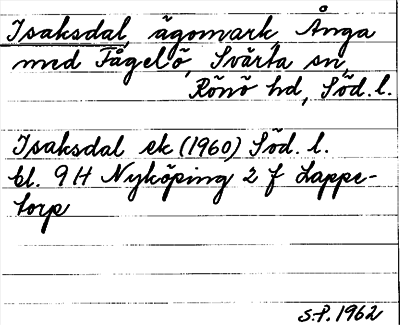 Isaksdal, ägomark Ånga
med Fågelö, Svärta sn,
Rönö hd, Söd. l.
Isaksdal ek (1960) Söd. l.
bl. 9H Nyköping 2 f Lappe-
torp
S.P. 1962